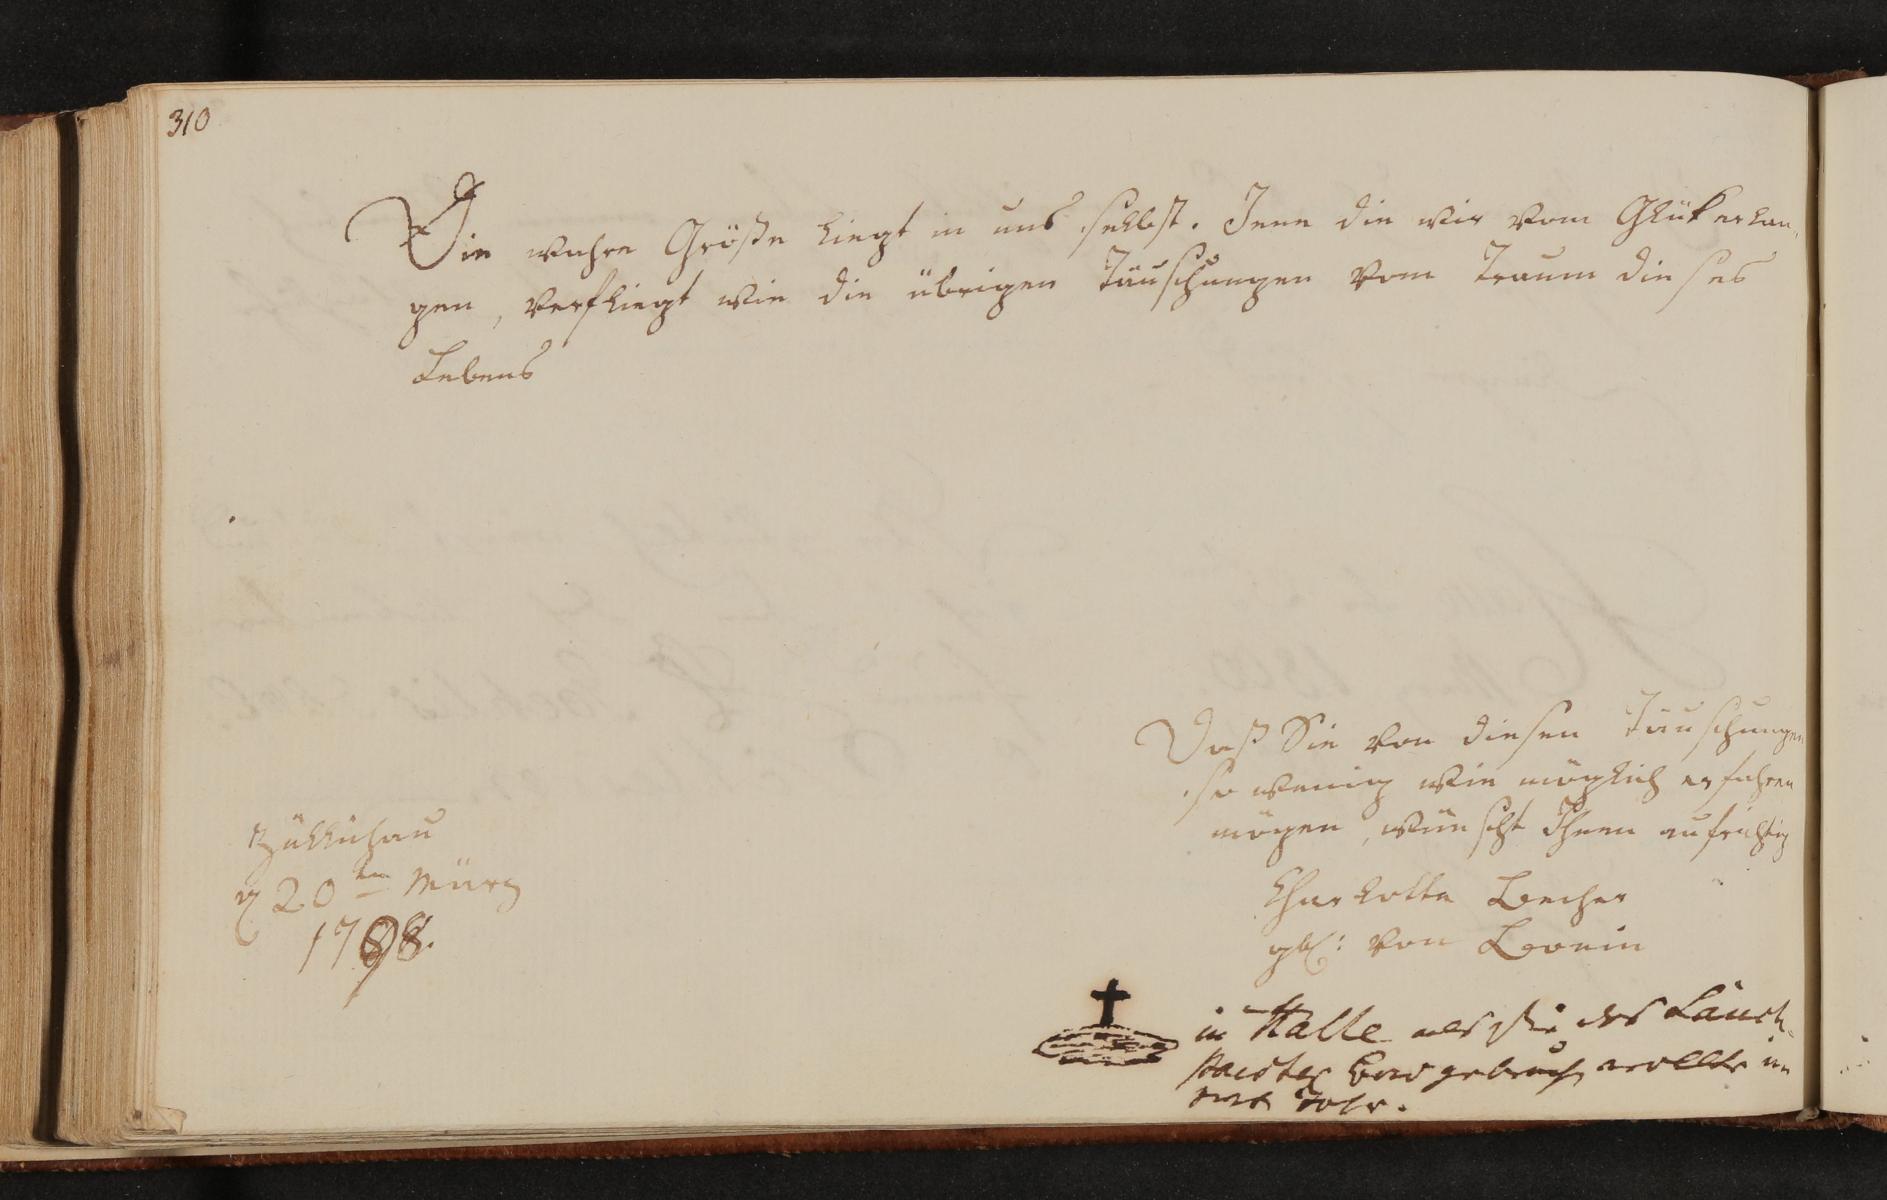 310
Die wahre Größe liegt in uns selbst. Jene die wir vom Glük erlan,
gen, verfliegt wie die übrigen Täuschungen vom Traum dieses
Lebens
Daß Sie von diesen Täuschungen
so wenig wie möglich erfahren
mögen, wünscht Ihnen aufrichtig
Charlotte Becher
gb: von
Züllichau
d 20ten März
1798.
in Halle als sie das Lauch¬
staedter Bad gebrauch wollte im